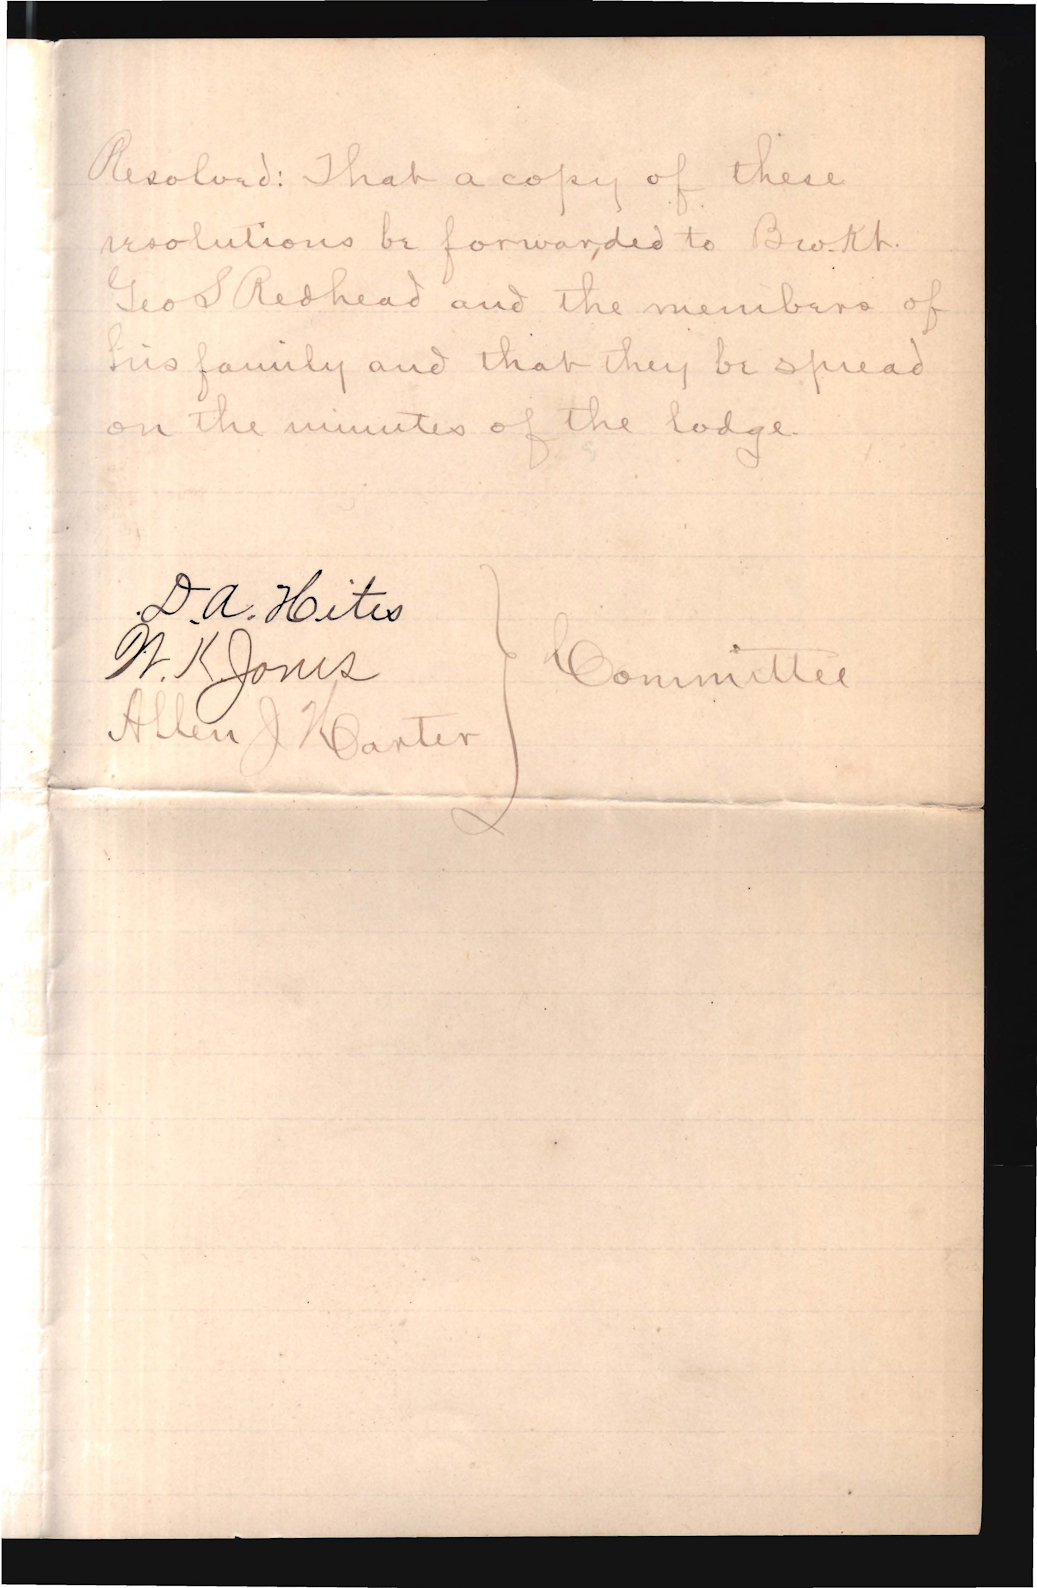 Resolved: That a copy of these
resolutions be forwarded to Bro. Kt.
Geo S Redhead and the members of
his family and that they be spread
on the minutes of the lodge.
D. A. Hites
W. K. Jones
Committee
Allen J Karter